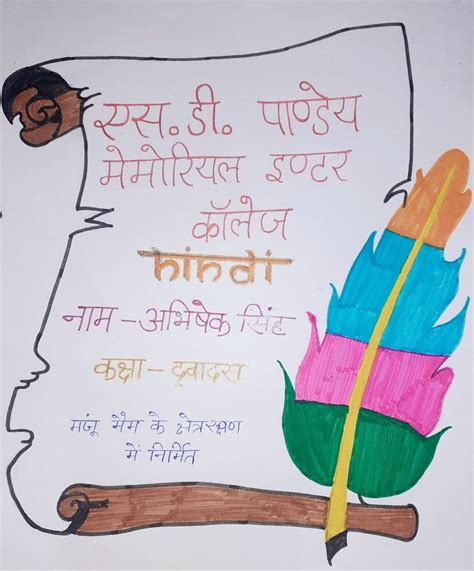 एस. डी. पाण्डेय
मेमोरियल इण्टर
कॉलेज
hindi
नाम - अभिषेक सिंह
कक्षा - द्वादस
मंजू मैम के क्षेत्रसक्षण
में निर्मित